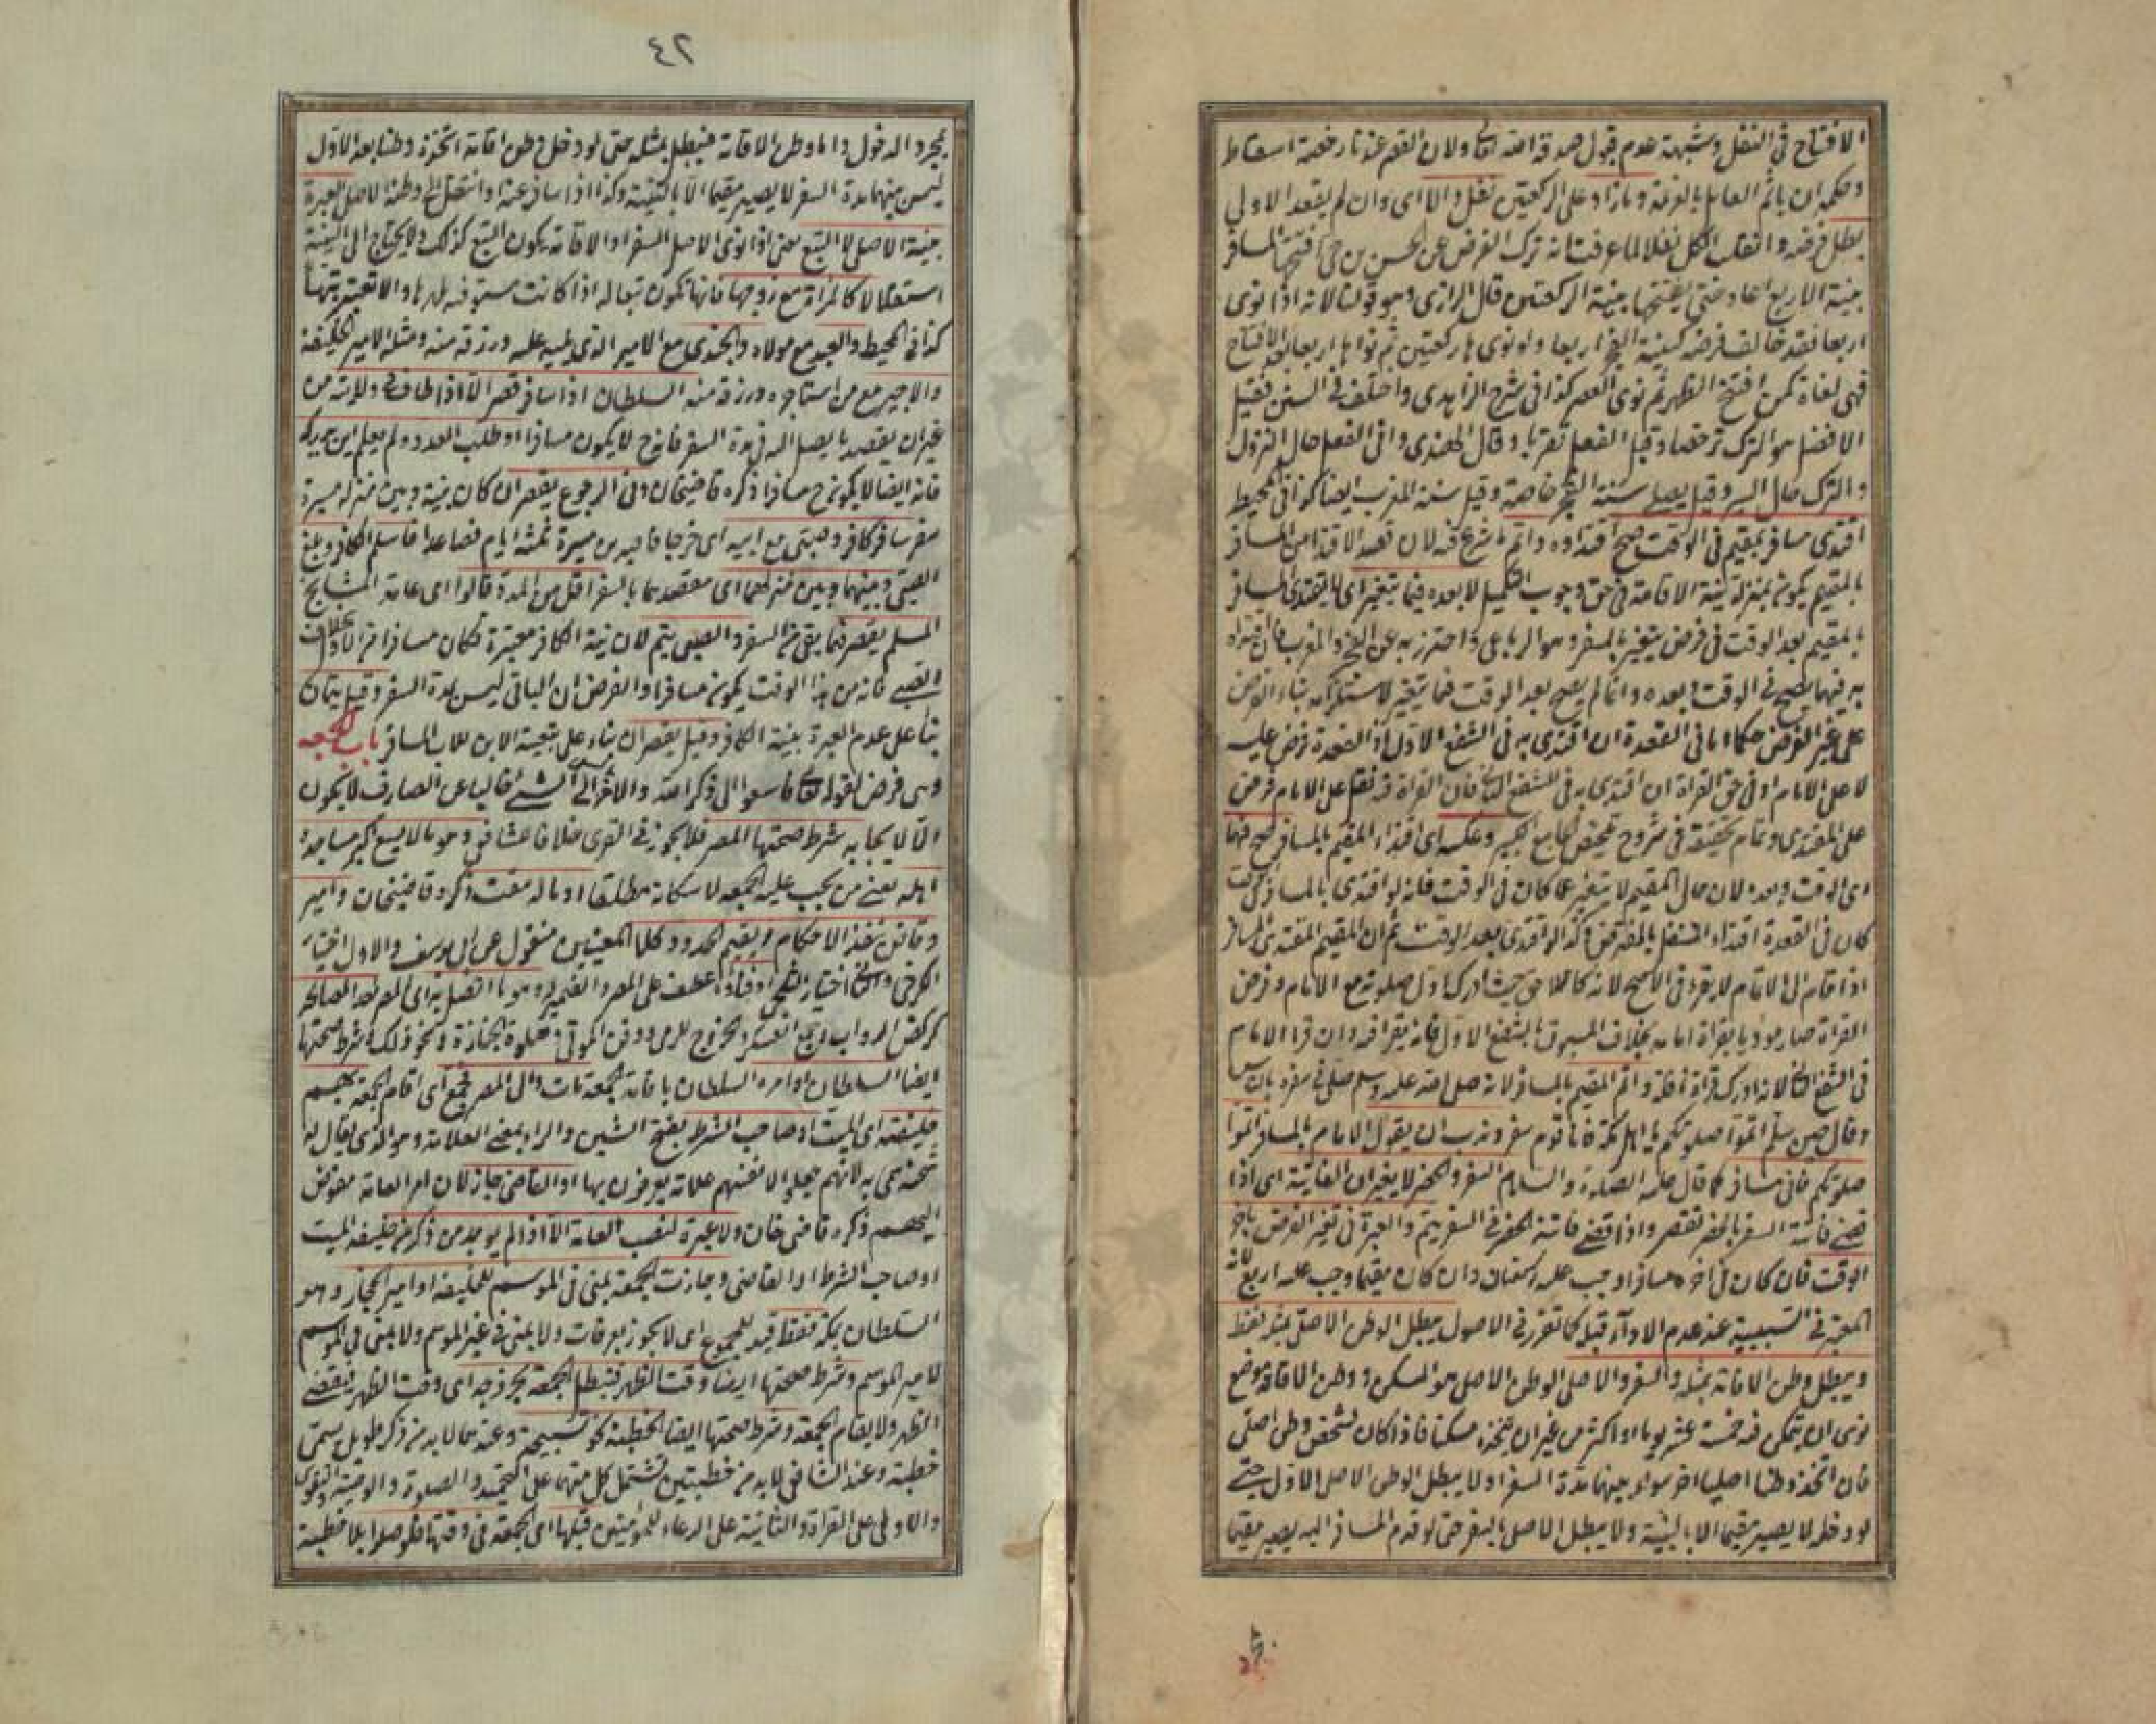 الافتتاح في النفل وشبهة عدم قبول صدقة الله تعالى ولان القصر عندنا رخصة اسقاط
وحكمه ان ياثم العامل بالعزيمة وما زاد على الركعتين نفل والا اى وان لم يقعد الاولى
بطل فرضه وانقلب الكل نفلا لما عرفت انه ترك الفرض عن الحسن بن حى افتتحها المسافر
بنية الاربع اعاد حتى يفتتحها بنية الركعتين قال الرازى وهو قولنا لانه اذا نوى
اربعا فقد خالف فرضه كنية الفجر اربعا ولو نوى ها ركعتين ثم نواها اربعا بعد الافتتاح
فهى لغاة كمن افتتح الظهر ثم نوى العصر كذا فى شرح الزاهدى واختلف فى السنن فقيل
الافضل هو الترك ترخصا وقيل الفعل تقربا وقال الهندى وانى الفعل حال النزول
والترك حال السير وقيل يصلى سنة الفجر خاصة وقيل سنة المغرب ايضا كذا فى المحيط
اقتدى مسافر بمقيم فى الوقت صح اقتداوه واتم ما شرع فيه لان قصد الاقتدا من المسافر
بالمقيم يكون بمنزلة نية الاقامة فى حق وجوب التكميل لا بعده فيما يتغير اى لا يقتدى المسافر
بالمقيم بعد الوقت فى فرض يتغير بالسفر وهو الرباعى واحترز به عن الفجر والمغرب فان اقتداه
به فيهما يصح فى الوقت وبعده وانما لم يصح بعد الوقت فيما يتغير لاستلزامه بناء الفرض
على غير الفرض حكما اما فى القعدة ان اقتدى به فى الشفع الاول اذ القعدة فرض عليه
لا على الامام او فى حق القراة ان اقتدى به فى الشفع الثانى فان القراة فيه نفل على الامام فرض
على المقتدى وتمام تحقيقه فى شروح تلخيص الجامع الكبير وعكسه اى اقتداء المقيم بالمسافر صح فيهما
اى الوقت وبعده لان حال المقيم لا يتغير عما كان فى الوقت فانه لو اقتدى بالمسافر فى الوقت
كان فى القعدة اقتداء المتنفل بالمفترض وكذا لو اقتدى بعد الوقت ثم ان المقيم المقتدى بالمسافر
اذا قام الى الاتمام لا يقرء فى الاصح لانه كاللاحق حيث ادرك اول صلوته مع الامام وفرض
القراة صار مودى بقراة امامه بخلاف المسبوق بالشفع الاول فانه يقرا فيه وان قرا الامام
فى الشفع الثانى لانه ادرك قراة نافلة واتم المقيم بالمسافر لانه صلى الله عليه وسلم صلى فى سفره بالناس
وقال حين سلم اتموا صلوتكم يا اهل مكة فانا قوم سفر وندب ان يقول الامام المسافر اتموا
صلوتكم فانى مسافر كما قال عليه الصلوة والسلام السفر والحضر لا يغيران الفائتة اى اذا
قضى فائتة السفر بالحضر تقصر واذا قضى فائتة الحضر فى السفر يتم والعبرة فى تغير الفرض باخر
الوقت فان كان فى اخره مسافرا وجب عليه ركعتان وان كان مقيما وجب عليه اربع لانه
المعتبر فى السببية عند عدم الاداء قبل كما تقرر فى الاصول يبطل الوطن الاصلى بمثله فقط
ويبطل وطن الاقامة بمثله والسفر والاصلى الوطن الاصلى هو المسكن ووطن الاقامة موضع
نوى ان يتمكن فيه خمسة عشر يوما او اكثر من غير ان يتخذه مسكنا فاذا كان لشخص وطن اصلى
فان اتخذ وطنا اصليا اخر سواء بينهما مدة السفر او لا يبطل الوطن الاصلى الاول حتى
لو دخله لا يصير مقيما الا بالنية ولا يبطل الاصلى بالسفر حتى لو قدم المسافر اليه يصير مقيما
٤٢
بمجرد الدخول واما وطن الاقامة فيبطل بمثله حتى لو دخل وطن اقامة اتخذه وطنا بعد الاول
ليس بينهما مدة السفر لا يصير مقيما الا بالنية وكذا اذا سافر عنه او انتقل الى وطنه الاصلى العبرة
بنية الاصل لا التبع يعنى اذا نوى الاصل السفر او الاقامة يكون التبع كذلك ولا يحتاج الى النية
استقلالا كالمراة مع زوجها فانها تكون تبعا له اذا كانت مستوفية لمهرها والا تعتبر نيتها
كذا فى المحيط والعبد مع مولاه والجندى مع الامير الذى يليه عليه ورزقه منه ومثله الامير الخليفة
والاجير مع من استاجره ورزقه منه السلطان اذا سافر قصر الا اذا طاف فى ولايته من
غير ان يقصد ما يصل اليه فى مدة السفر فانه ح لا يكون مسافرا او طلب العدو ولم يعلم اين يدركه
فانه ايضا لا يكون ح مسافرا ذكره قاضيخان وفى الرجوع يقصر ان كان بينه وبين منزله مسيرة
سفر سافر كافر وصبى مع ابيه اى خرجا قاصدين مسيرة ثلثة ايام فصاعدا فاسلم الكافر وبلغ
الصبى وبينهما وبين منزلهما اى مقصدهما بالسفر اقل من المدة قالوا اى عامة المشايخ
المسلم يقصر فيما بقى من السفر والصبى يتم لان نية الكافر معتبرة فكان مسافرا من الاول بخلاف
الصبى فانه من هذا الوقت يكون مسافرا والفرض ان الباقى ليس مدة السفر وقيل يتمان
بناء على عدم العبرة بنية الكافر وقيل يقصران بناء على تبعية الابن للاب المسافر باب الجمعه
وهى فرض لقوله تعالى فاسعوا الى ذكر الله والامر بالسعى الى الشئ خاليا عن الصارف لا يكون
الا لايجابه شرط صحتها المصر فلا يجوز فى القرى خلافا للشافعى وهو ما لا يسع اكبر مساجده
اهله يعنى من يجب عليه الجمعه لا سكانه مطلقا او ماله مفت ذكره قاضيخان وامير
وقاض ينفذ الاحكام ويقيم الحدود وكلا المعنيين منقول عن ابى يوسف والاول اختيار
الكرخى والثانى اختيار الثلجى او فناؤه عطف على المصر والضمير له وهو ما اتصل به اى المصر معد المصالحه
كركض الدواب وجمع العسكر والخروج للرمى ودفن الموتى وصلوة الجنازة ونحو ذلك وشرط صحتها
ايضا السلطان او امره السلطان باقامة الجمعة مات والى المصر فجمع اى اقام الجمعة بهم
خليفته اى الميت او صاحب الشرط بفتح الشين والراء بمعنى العلامة وهو الذى يقال له
شحنه سمى به لانهم جعلوا لانفسهم علامة يعرفون بها او القاضى جاز لان امر العامة مفوض
اليهم ذكره قاضى خان ولا عبرة لنصب العامة الا اذا لم يوجد من ذكر من خليفة الميت
او صاحب الشرط او القاضى وجازت الجمعة بمنى فى الموسم للخليفة او امير الحجاز وهو
السلطان بمكة فقط قيد للمجموع اى لا يجوز بعرفات ولا بمنى فى غير الموسم ولا بمنى فى الموسم
لامير الموسم وشرط صحتها ايضا وقت الظهر فتبطل الجمعة بخروجه اى وقت الظهر فيقضى
الظهر ولا يقام الجمعة وشرط صحتها ايضا الخطبة نحو تسبيحة وعندهما لا بد من ذكر طويل يسمى
خطبة وعند الشافعى لا بد من خطبتين تشتمل كل منهما على التحميد والصلوة والوصية بالتقوى
والاولى على القراة والثانية على الدعاء للمؤمنين قبلها اى الجمعة فى وقتها فلو صلوا بلا خطبة